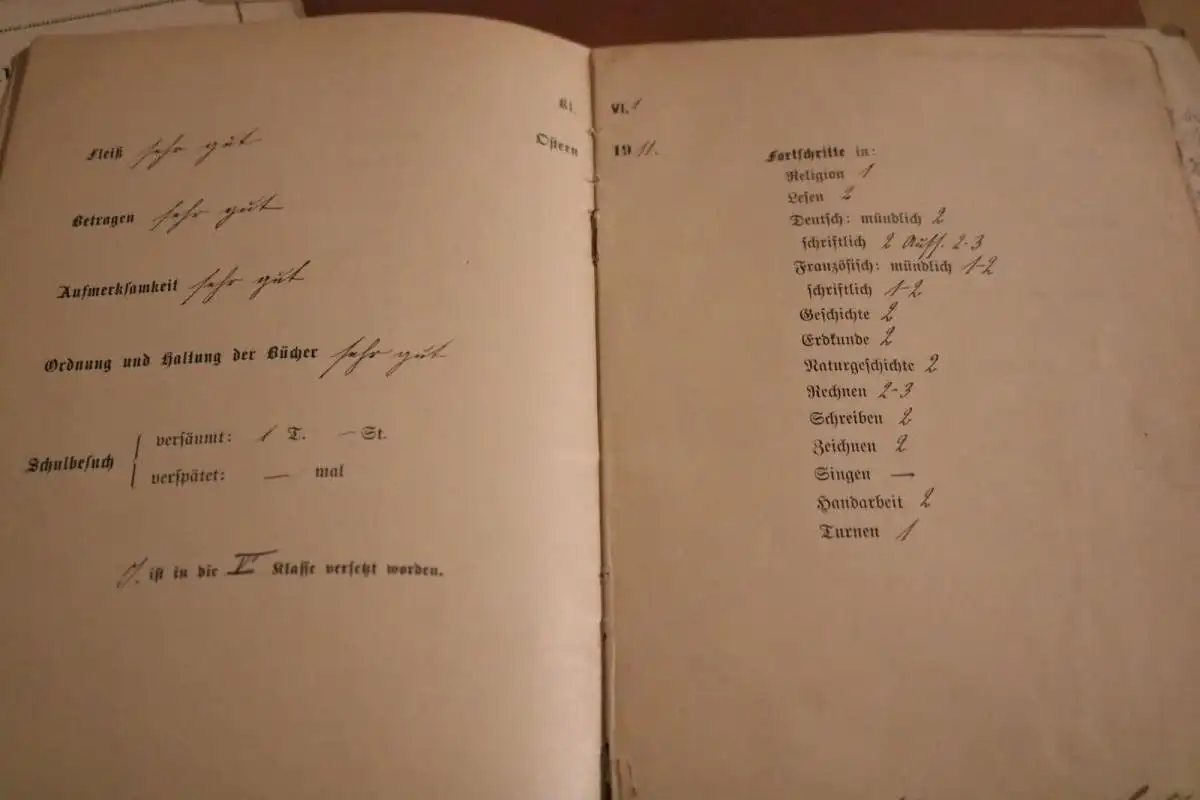 Kl. VI.1
Ostern 1911.
Fleiß sehr gut
Betragen sehr gut
Aufmerksamkeit sehr gut
Ordnung und Haltung der Bücher sehr gut
Schulbesuch
versäumt: 1 T. — St.
verspätet: — mal
J. ist in die V Klasse versetzt worden.
Fortschritte in:
Religion 1
Lesen 2
Deutsch: mündlich 2
schriftlich 2 Aufs. 2-3
Französisch: mündlich 1-2
schriftlich 1-2
Geschichte 2
Erdkunde 2
Naturgeschichte 2
Rechnen 2-3
Schreiben 2
Zeichnen 2
Singen —
Handarbeit 2
Turnen 1